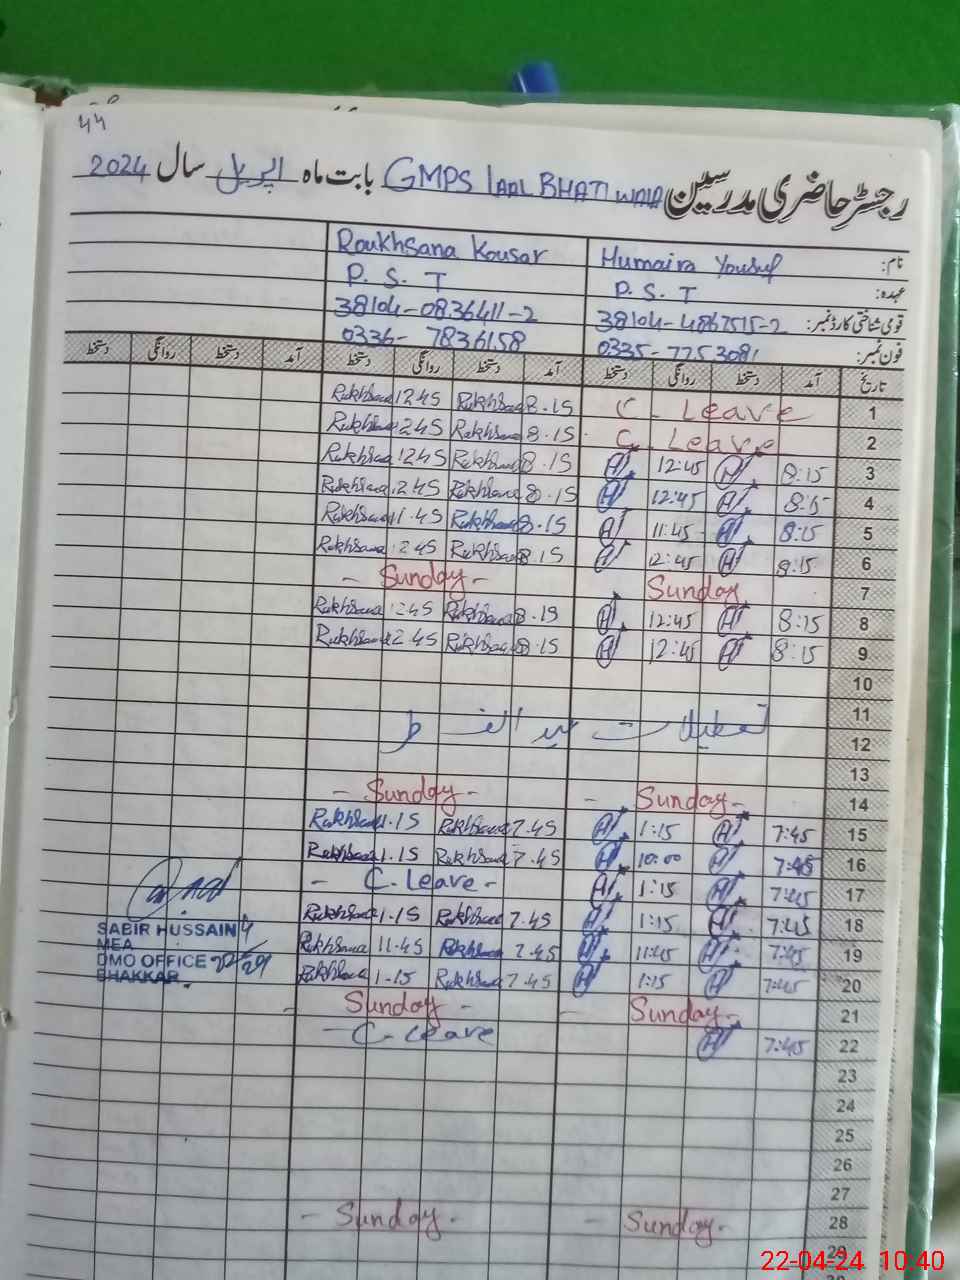 44
رجسٹر حاضری مدرسین GMPS LAAL BHATI WALA بابت ماہ اپریل سال 2024
نام: Humaira Yousuf Roukhsana Kousar
عہدہ: P.S.T P.S.T
قومی شناختی کارڈ نمبر: 38104-4867515-2 38104-0836411-2
فون نمبر: 0335-7753081 0336-7836158
تاریخ آمد دستخط روانگی دستخط آمد دستخط روانگی دستخط آمد دستخط روانگی دستخط
1 C. Leave 8.15 Rukhsana 1245 Rukhsana
2 C. Leave 8.15 Rukhsana 1245 Rukhsana
3 8:15 12:45 8.15 Rukhsana 1245 Rukhsana
4 8:15 12:45 8.15 Rukhsana 1245 Rukhsana
5 8:15 11:45 8.15 Rukhsana 11.45 Rukhsana
6 8:15 12:45 8.15 Rukhsana 1245 Rukhsana
7 Sunday - Sunday -
8 8:15 12:45 8.15 Rukhsana 1245 Rukhsana
9 8:15 12:45 8.15 Rukhsana 1245 Rukhsana
10
11 تعطیلات عید الفطر
12
13
14 - Sunday - - Sunday -
15 7:45 1:15 7.45 Rukhsana 1.15 Rukhsana
16 7:45 10:00 7.45 Rukhsana 1.15 Rukhsana
17 7:45 1:15 - C. Leave -
18 7:45 1:15 7.45 Rukhsana 1.15 Rukhsana
19 7:45 11:45 7.45 Rukhsana 11.45 Rukhsana
20 7:45 1:15 7.45 Rukhsana 1.15 Rukhsana
21 - Sunday - - Sunday -
22 7:45 - C. Leave
23
24
25
26
27
28 - Sunday - - Sunday -
29
30
SABIR HUSSAIN
MEA
DMO OFFICE
BHAKKAR
22-04-24 10:40